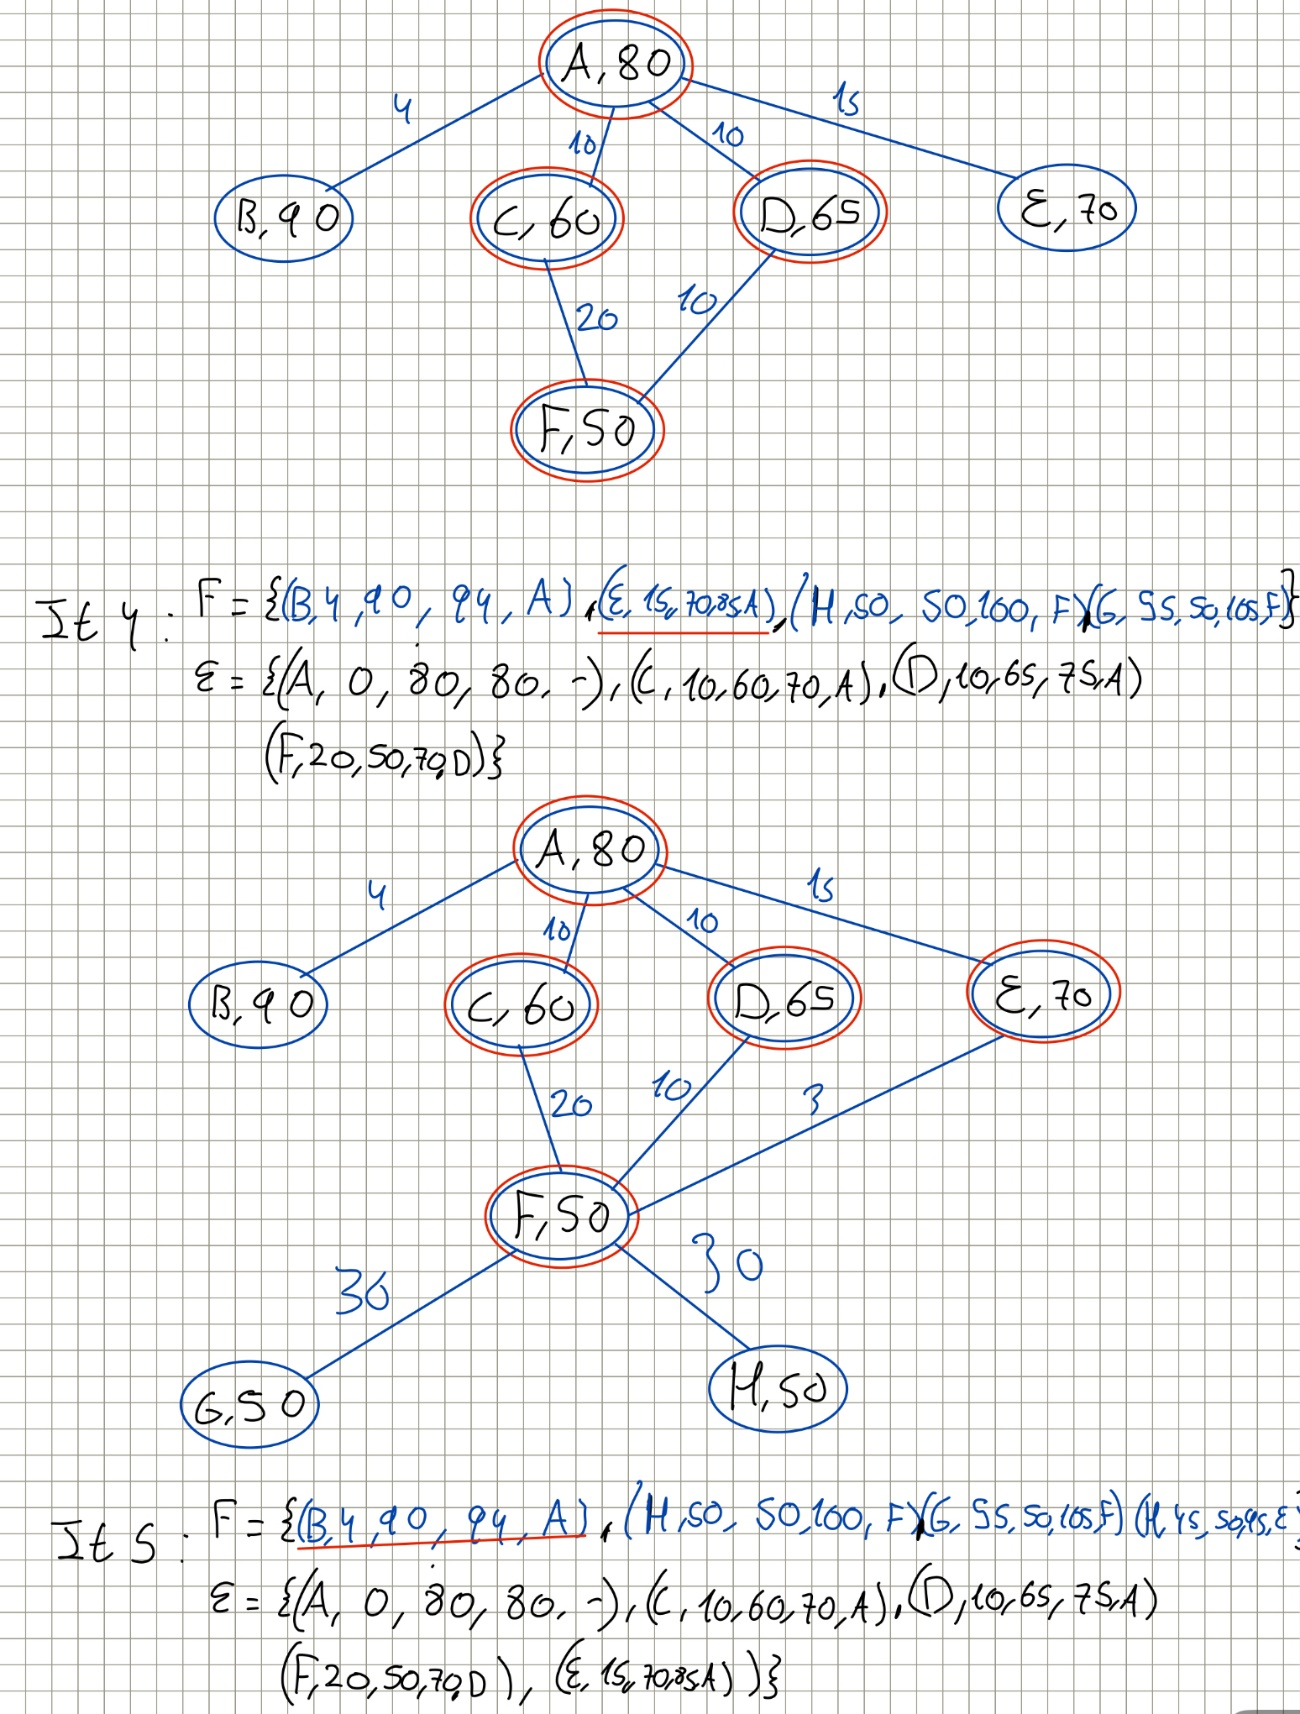 A,80
4
10
10
15
B,90
C,60
D,65
E,70
20
10
F,50
It 4 : F = {(B,4,90, 94, A), (E, 15, 70,85,A), (H,50, 50,100, F)(G, 55, 50,105,F)}
ε = {(A, 0, 80, 80, -), (C, 10,60,70,A), (D,10,65,75,A)
(F,20,50,70,D)}
A,80
4
10
10
15
B,90
C,60
D,65
E,70
20
10
3
F,50
36
30
G,50
H,50
It 5 : F = {(B,4,90, 94, A), (H,50, 50,100, F)(G, 55, 50,105,F) (H, 45, 50,95,E)
ε = {(A, 0, 80, 80, -), (C, 10,60,70,A), (D,10,65,75,A)
(F,20,50,70,D), (E, 15, 70,85,A))}